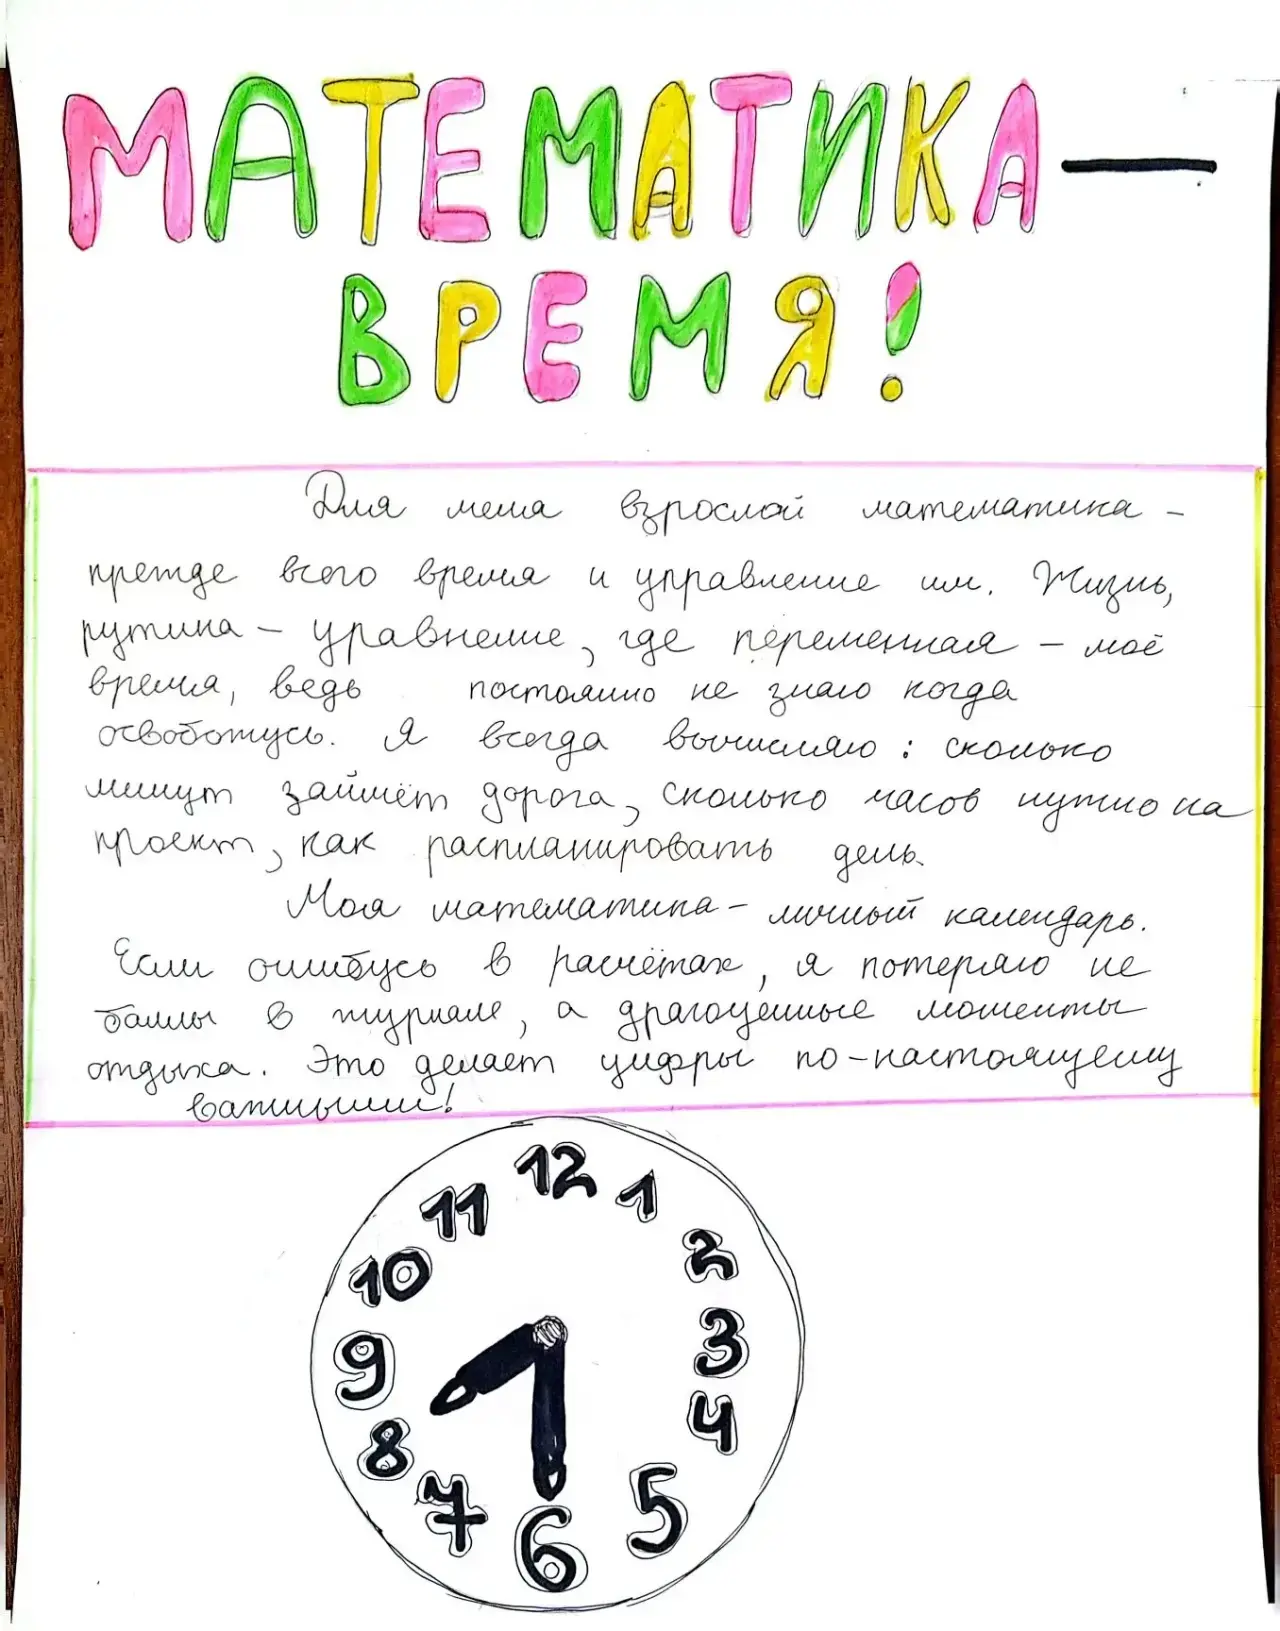 МАТЕМАТИКА —
ВРЕМЯ!
Для меня взрослой математика -
прежде всего время и управление им. Жизнь,
рутина - уравнение, где переменная - моё
время, ведь постоянно не знаю когда
освобожусь. Я всегда вычисляю: сколько
минут займёт дорога, сколько часов нужно на
проект, как распланировать день.
Моя математика - личный календарь.
Если ошибусь в расчётах, я потеряю не
баллы в журнале, а драгоценные моменты
отдыха. Это делает цифры по-настоящему
важными!
12
11 1
10 2
9 3
8 4
7 5
6